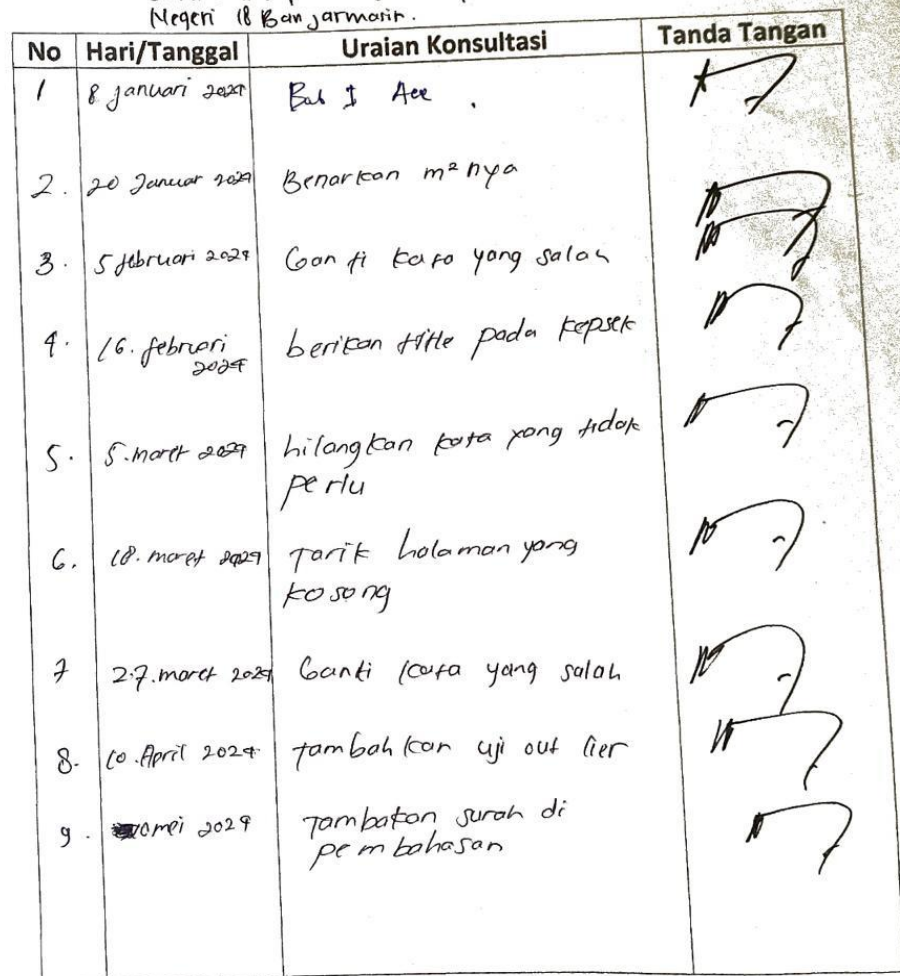 Negeri 18 Banjarmasin.
No Hari/Tanggal Uraian Konsultasi Tanda Tangan
1 8 januari 2024 Bab I Acc .
2. 20 Januar 2024 Benarkan m² nya
3. 5 februari 2024 Ganti kata yang salah
4. 16. februari 2024 berikan title pada kepsek
5. 5. maret 2024 hilangkan kata yang tidak
perlu
6. 18. maret 2024 Tarik halaman yang
kosong
7 27. maret 2024 Ganti kata yang salah
8. 10. April 2024 tambahkan uji out lier
9. mei 2024 Tambakan surah di
pembahasan